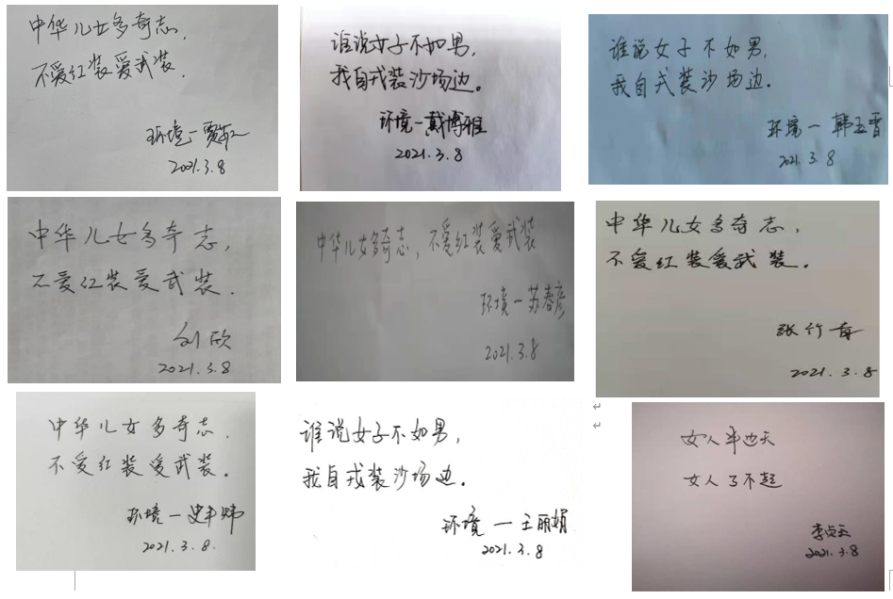 中华儿女多奇志,
不爱红装爱武装.
环境一
2021.3.8
谁说女子不如男,
我自戎装沙场边。
环境一戴博雅
2021.3.8
谁说女子不如男,
我自戎装沙场边。
环境一韩玉雪
2021.3.8
中华儿女多奇志,
不爱红装爱武装.
刘欣
2021.3.8
中华儿女多奇志,不爱红装爱武装
环境一苏春彦
2021.3.8
中华儿女多奇志,
不爱红装爱武装.
张竹奇
2021.3.8
中华儿女多奇志.
不爱红装爱武装。
环境一史丰炜
2021.3.8.
谁说女子不如男,
我自戎装沙场边.
环境一王丽娟
2021.3.8
女人半边天
女人了不起
李贞玉
2021.3.8